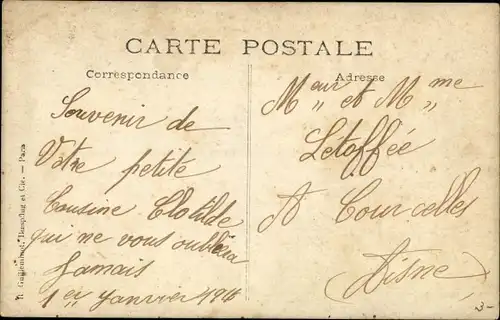 CARTE POSTALE
Correspondance
Souvenir de
Votre petite
Cousine Clotilde
qui ne vous oubliera
Jamais
1er Janvier 191
Adresse
Mour et Mme
Letoffée
A Courcelles
(Aisne)
R. Guilleminot, Bœspflug et Cie. — Paris
3-